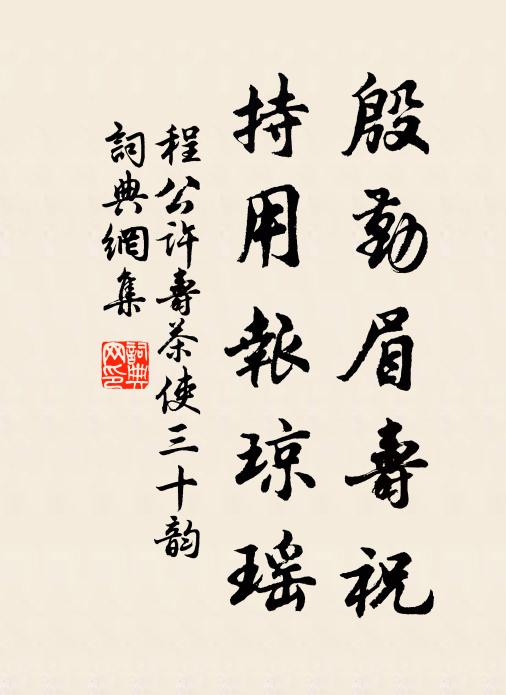 殷勤眉壽祝
持用報琼瑶
程公许壽茶使三十韵
詞典網集
詞典网印